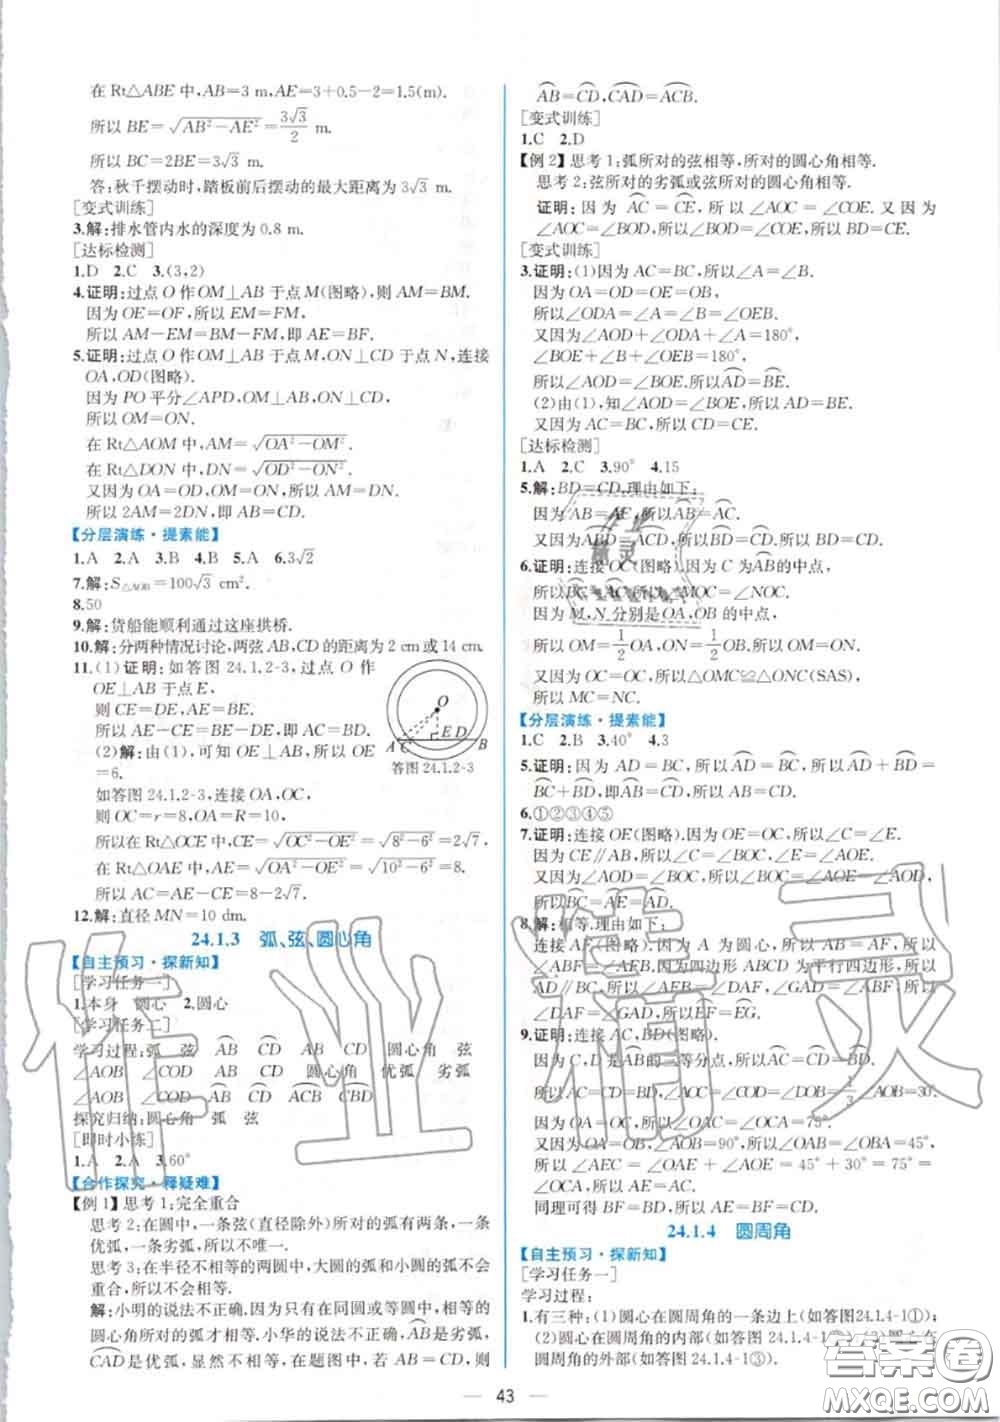 在Rt△ABE中,AB=3 m,AE=3+0.5-2=1.5(m).
所以BE=√(AB²-AE²)=3√3/2 m.
所以BC=2BE=3√3 m.
答:秋千摆动时,踏板前后摆动的最大距离为3√3 m.
[变式训练]
3.解:排水管内水的深度为0.8 m.
[达标检测]
1.D 2.C 3.(3,2)
4.证明:过点O作OM⊥AB于点M(图略),则AM=BM.
因为OE=OF,所以EM=FM,
所以AM-EM=BM-FM,即AE=BF.
5.证明:过点O作OM⊥AB于点M,ON⊥CD于点N,连接
OA,OD(图略).
因为PO平分∠APD,OM⊥AB,ON⊥CD,
所以OM=ON.
在Rt△AOM中,AM=√(OA²-OM²)
在Rt△DON中,DN=√(OD²-ON²)
又因为OA=OD,OM=ON,所以AM=DN.
所以2AM=2DN,即AB=CD.
【分层演练·提素能】
1.A 2.A 3.B 4.B 5.A 6.3√2
7.解:S△AOB=100√3 cm².
8.50
9.解:货船能顺利通过这座拱桥.
10.解:分两种情况讨论,两弦AB,CD的距离为2 cm或14 cm.
11.(1)证明:如答图24.1.2-3,过点O作
OE⊥AB于点E,
则CE=DE,AE=BE.
所以AE-CE=BE-DE,即AC=BD.
(2)解:由(1),可知OE⊥AB,OE
=6.
如答图24.1.2-3,连接OA,OC,
则OC=r=8,OA=R=10,
所以在Rt△OCE中,CE=√(OC²-OE²)=√(8²-6²)=2√7
在Rt△OAE中,AE=√(OA²-OE²)=√(10²-6²)=8,
所以AC=AE-CE=8-2√7.
O
A C E D B
答图24.1.2-3
12.解:直径MN=10 dm.
24.1.3 弧、弦、圆心角
【自主预习·探新知】
[学习任务一]
1.本身 圆心 2.圆心
[学习任务二]
学习过程:弧 弦 AB CD AB CD 圆心角 弦
∠AOB ∠COD AB CD 圆心角 优弧 劣弧
∠AOB ∠COD AB CD ACB CBD
探究归纳:圆心角 弧 弦
[即时小练]
1.A 2.A 3.60°
【合作探究·释疑难】
[例1]思考1:完全重合
思考2:在圆中,一条弦(直径除外)所对的弧有两条,一条
优弧,一条劣弧,所以不唯一.
思考3:在半径不相等的两圆中,大圆的弧和小圆的弧不可
能重合,所以不会相等.
解:小明的说法不正确,因为只有在同圆或等圆中,相等的
圆心角所对的弧才相等.小华的说法不正确,AB是劣弧,
CAD是优弧,显然不相等,在题图中,若AB=CD,则
AB=CD,CAD=ACB.
[变式训练]
1.C 2.D
[例2]思考1:弧所对的弦相等,所对的圆心角相等.
思考2:弦所对的劣弧或弦所对的圆心角相等.
证明:因为AC=CE,所以∠AOC=∠COE.又因为
∠AOC=∠BOD,所以∠BOD=∠COE,所以BD=CE.
[变式训练]
3.证明:(1)因为AC=BC,所以∠A=∠B.
因为OA=OD=OE=OB,
所以∠ODA=∠A=∠B=∠OEB.
又因为∠AOD+∠ODA+∠A=180°,
∠BOE+∠B+∠OEB=180°,
所以∠AOD=∠BOE.所以AD=BE.
(2)由(1),知∠AOD=∠BOE,所以AD=BE.
又因为AC=BC,所以CD=CE.
[达标检测]
1.A 2.C 3.90° 4.15
5.解:BD=CD.理由如下:
因为AB=AE,所以AB=AE.
又因为ABD=ACD,所以BD=CD.
6.证明:连接OC(图略).因为C为AB的中点,
所以AC=BC,所以∠MOC=∠NOC.
因为M,N分别是OA,OB的中点,
所以OM=1/2OA,ON=1/2OB,所以OM=ON.
又因为OC=OC,所以△OMC≌△ONC(SAS),
所以MC=NC.
【分层演练·提素能】
1.C 2.B 3.40° 4.3
5.证明:因为AD=BC,所以AD=BC,所以AD+BD=
BC+BD,即AB=CD,所以AB=CD.
6.①②③④⑤
7.证明:连接OE(图略).因为OE=OC,所以∠C=∠E.
因为CE∥AB,所以∠C=∠BOC,∠E=∠AOE.
又因为∠AOD=∠BOC,所以∠AOE=∠AOD,
所以AE=AD,所以AE=AD.
8.解:相等.理由如下:
连接AF(图略).因为A为圆心,所以AB=AF,所以
∠ABF=∠AFB.因为四边形ABCD为平行四边形,所
以AD∥BC,所以∠AFB=∠DAF,∠GAD=∠ABF,所以
∠DAF=∠GAD,所以EF=EG.
9.证明:连接AC,BD(图略).
因为C,D是AB的三等分点,所以AC=CD=DB,
所以AC=CD=BD,∠AOC=∠COD=∠DOB=1/3∠AOB=30°.
因为OA=OC,所以∠OAC=∠OCA=75°.
又因为OA=OB,∠AOB=90°,所以∠OAB=∠OBA=45°,
所以∠AEC=∠OAE+∠AOE=45°+30°=75°=
∠OCA,所以AE=AC.
同理可得BF=BD,所以AE=BF=CD.
24.1.4 圆周角
【自主预习·探新知】
[学习任务一]
学习过程:
1.有三种:(1)圆心在圆周角的一条边上(如答图24.1.4-1①);
(2)圆心在圆周角的内部(如答图24.1.4-1②);(3)圆心在
圆周角的外部(如答图24.1.4-1③).
43
作业精灵
答案圈
MXQE.COM